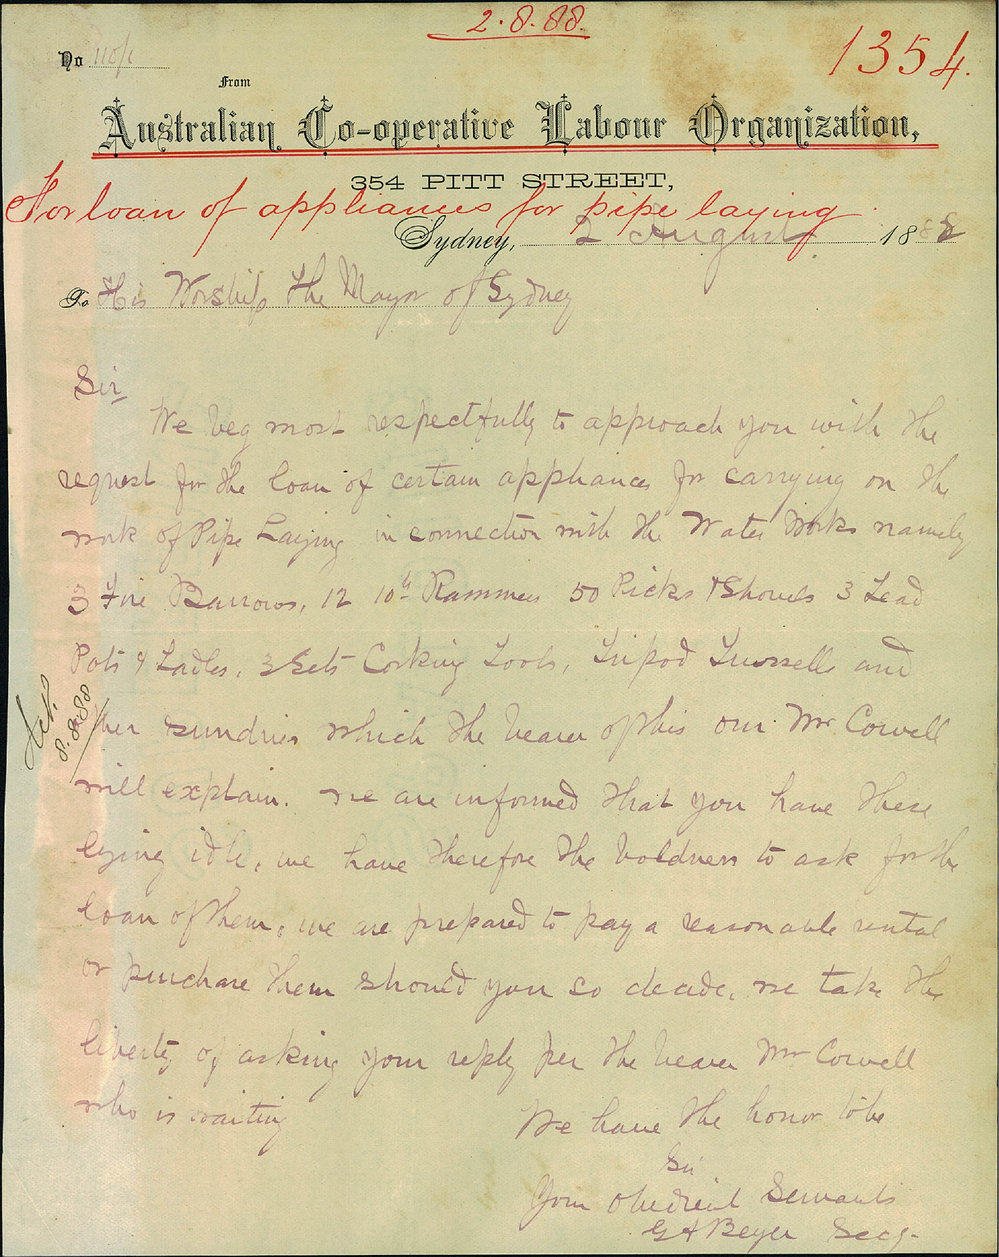 2.8.88.
1354.
No 110/1
From
Australian Co-operative Labour Organization,
354 PITT STREET,
For loan of appliances for pipe laying
Sydney, 2 August 1888
To His Worship the Mayor of Sydney
Sir
We beg most respectfully to approach you with the
request for the loan of certain appliances for carrying on the
work of Pipe Laying in connection with the Water Works namely
3 Fire Barrows, 12 10th Rammers 50 Picks & Shovels 3 Lead
Pots & Ladles, 3 Sets Corking Tools, Tripod and
other sundries which the bearer of this our Mr Cowell
will explain. we are informed that you have these
lying idle, we have therefore the boldness to ask for the
loan of them, we are prepared to pay a reasonable rental
or purchase them should you so decide, we take the
liberty of asking your reply per the bearer Mr Cowell
who is waiting
We have the honor to be
Sir
Your obedient Servants
G A Beyer Secy.
8.8.88